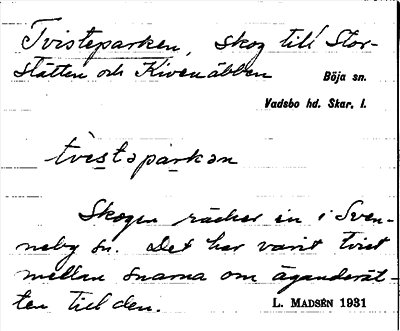 Tvisteparken, skog till Stor-
slätten och Kivenäbben
Böja sn.
Vadsbo hd. Skar. l.
tvìstəpárkən
Skogen räcker in i Sven-
neby sn. Det har varit tvist
mellan snarna om äganderät-
ten till den.
L. MADSÉN 1931